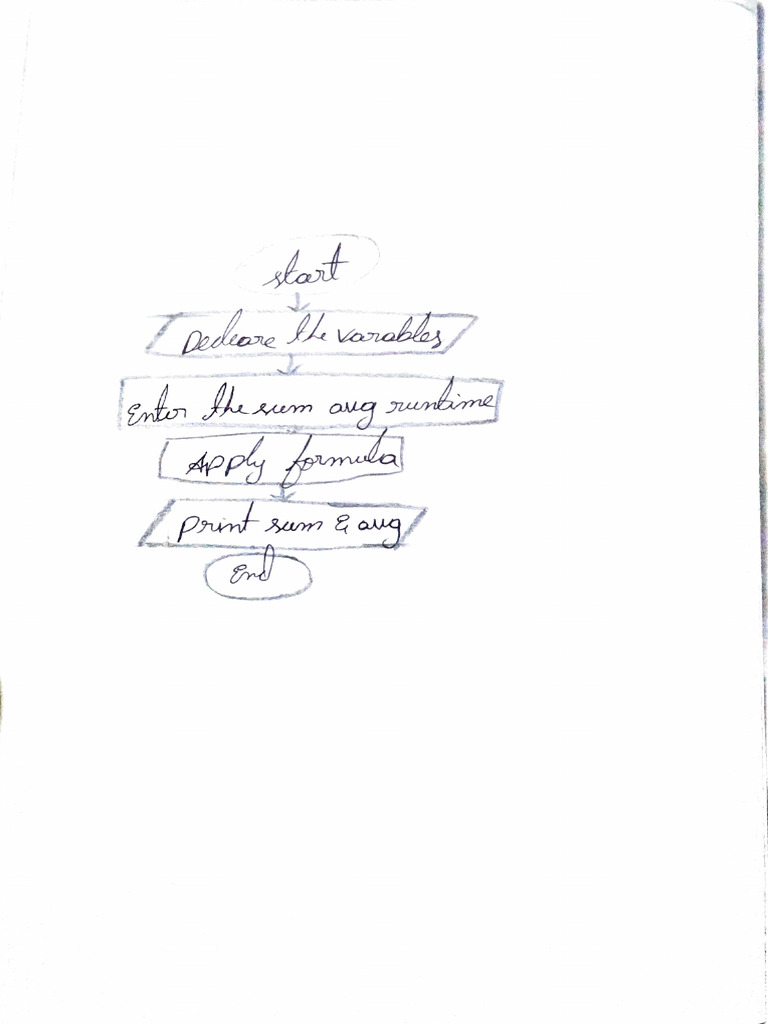 start
Decleare the varables
Enter the sum avg runtime
Apply formula
print sum & avg
End